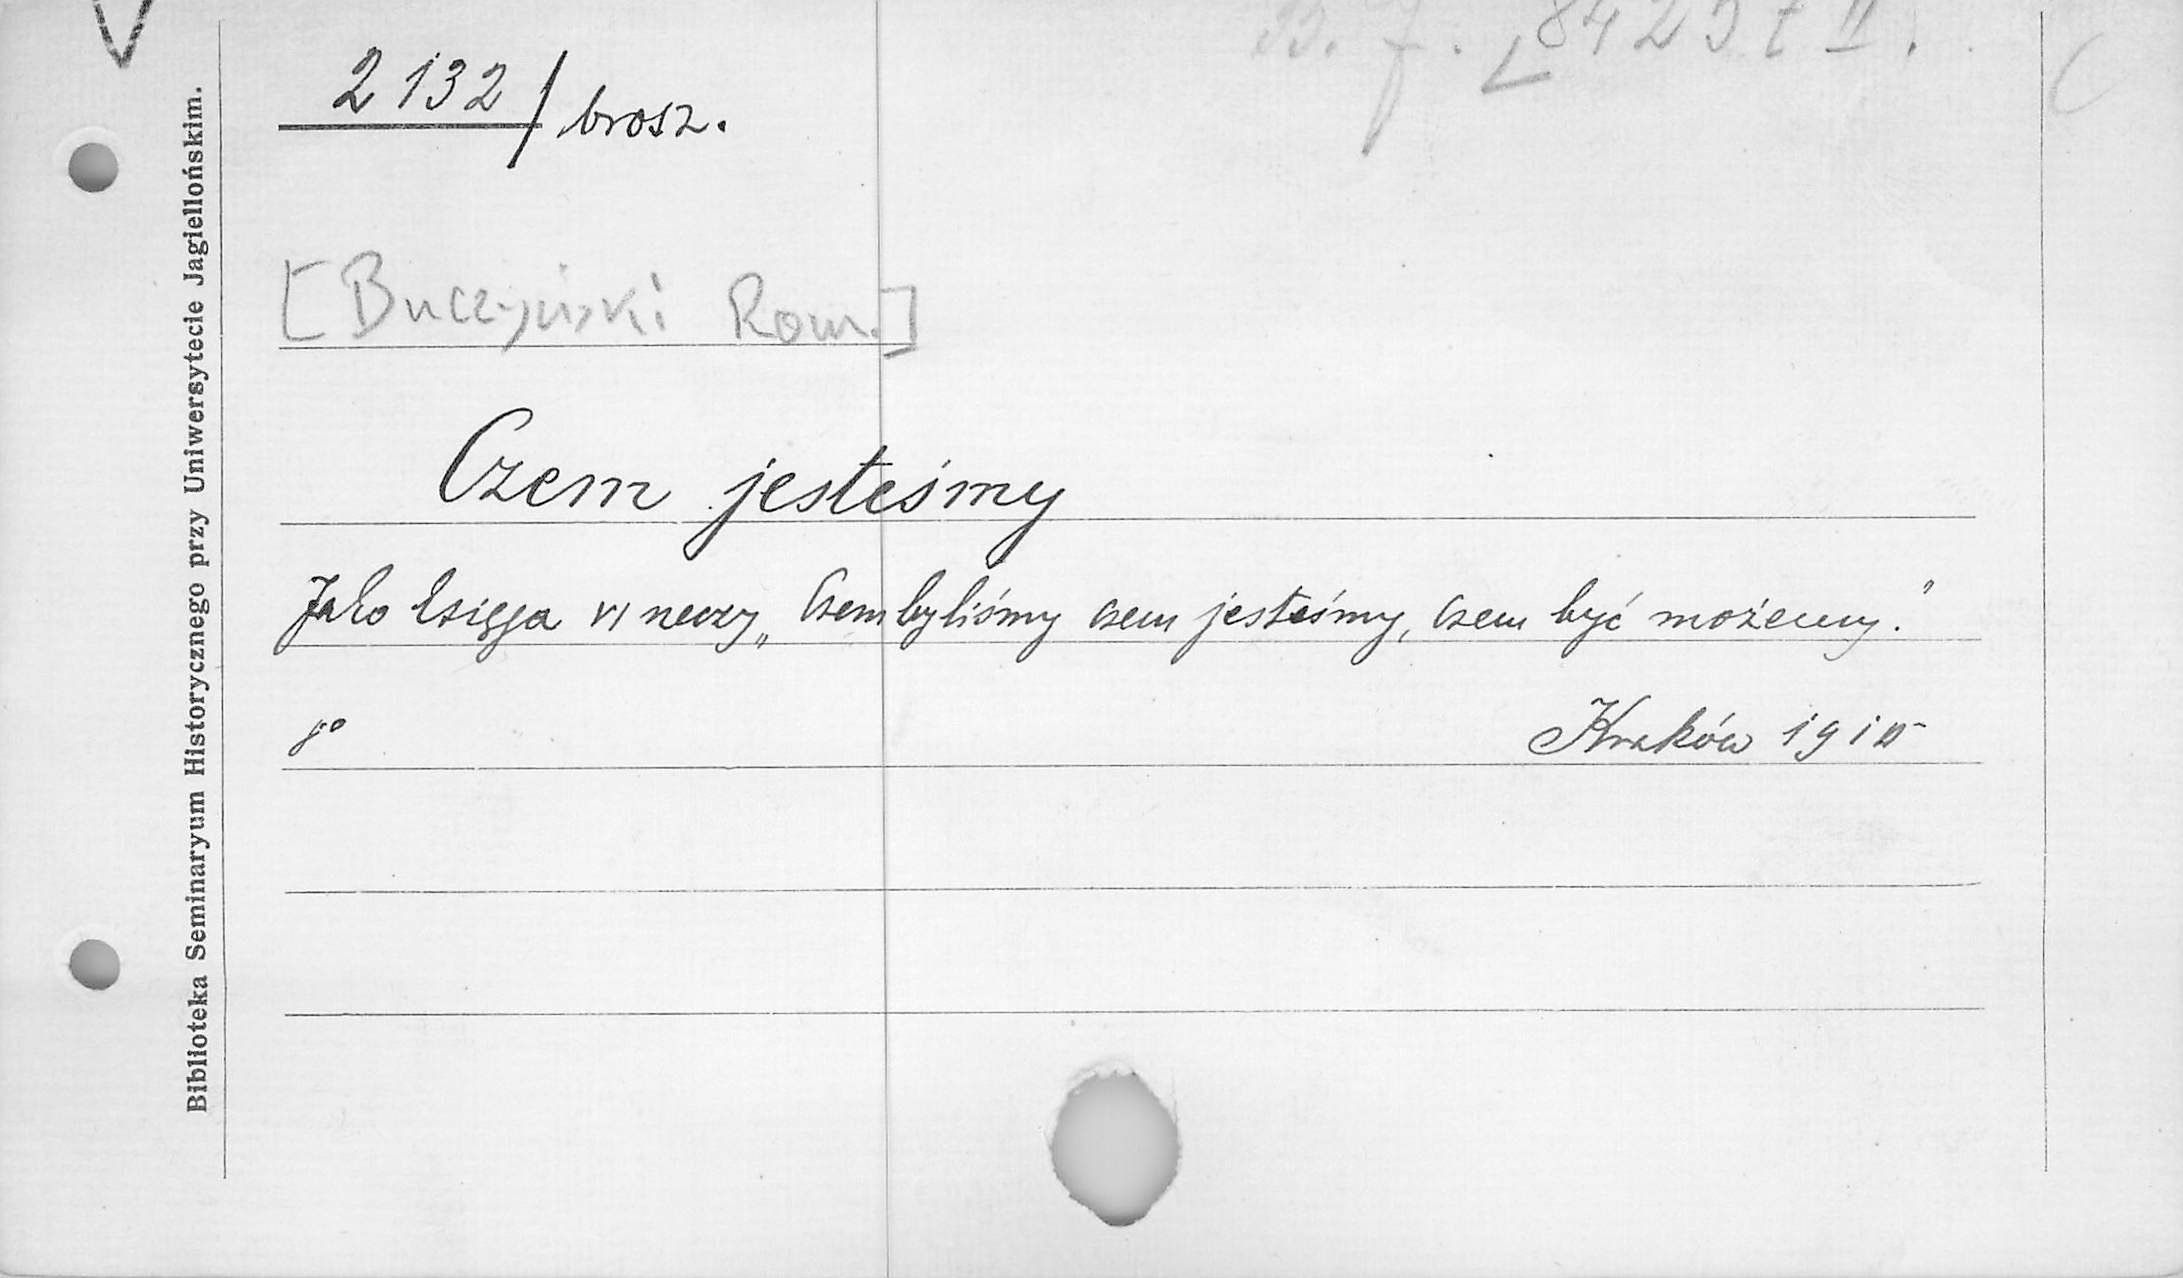 B. J. 8423 t II.
2132/brosz.
[Buczyński Rom.]
Czem jesteśmy
Jako księga VI rzeczy „Czem byliśmy czem jesteśmy, czem być możemy."
8°
Kraków 191
Biblioteka Seminaryum Historycznego przy Uniwersytecie Jagiellońskim.